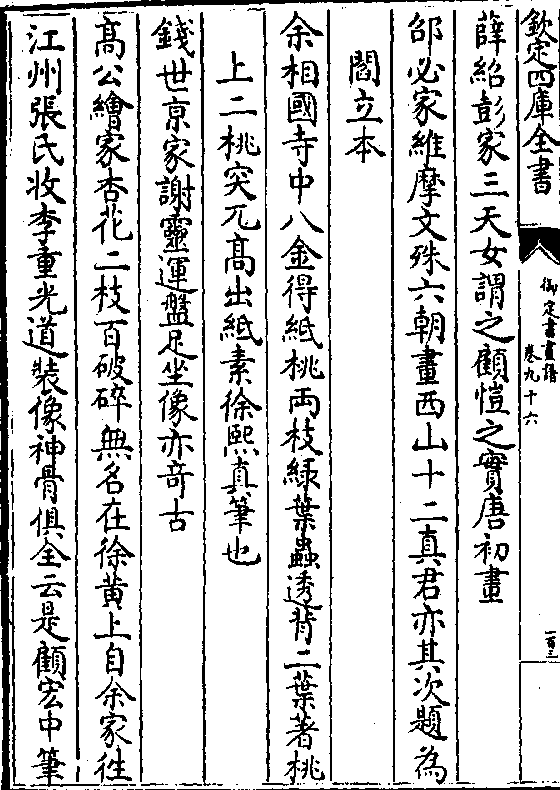 欽定四庫全書
御定書畫譜
卷九十六
一百三
薛紹彭家三天女謂之顧愷之實唐初畫
邰必家維摩文殊六朝畫西山十二真君亦其次題為
閻立本
余相國寺中八金得紙桃兩枝綠葉蟲透背二葉著桃
上二桃突兀高出紙素徐熙真筆也
錢世京家謝靈運盤足坐像亦竒古
高公繪家杏花二枝百破碎無名在徐黃上自余家徃
江州張氏收李重光道裝像神骨俱全云是顧宏中筆